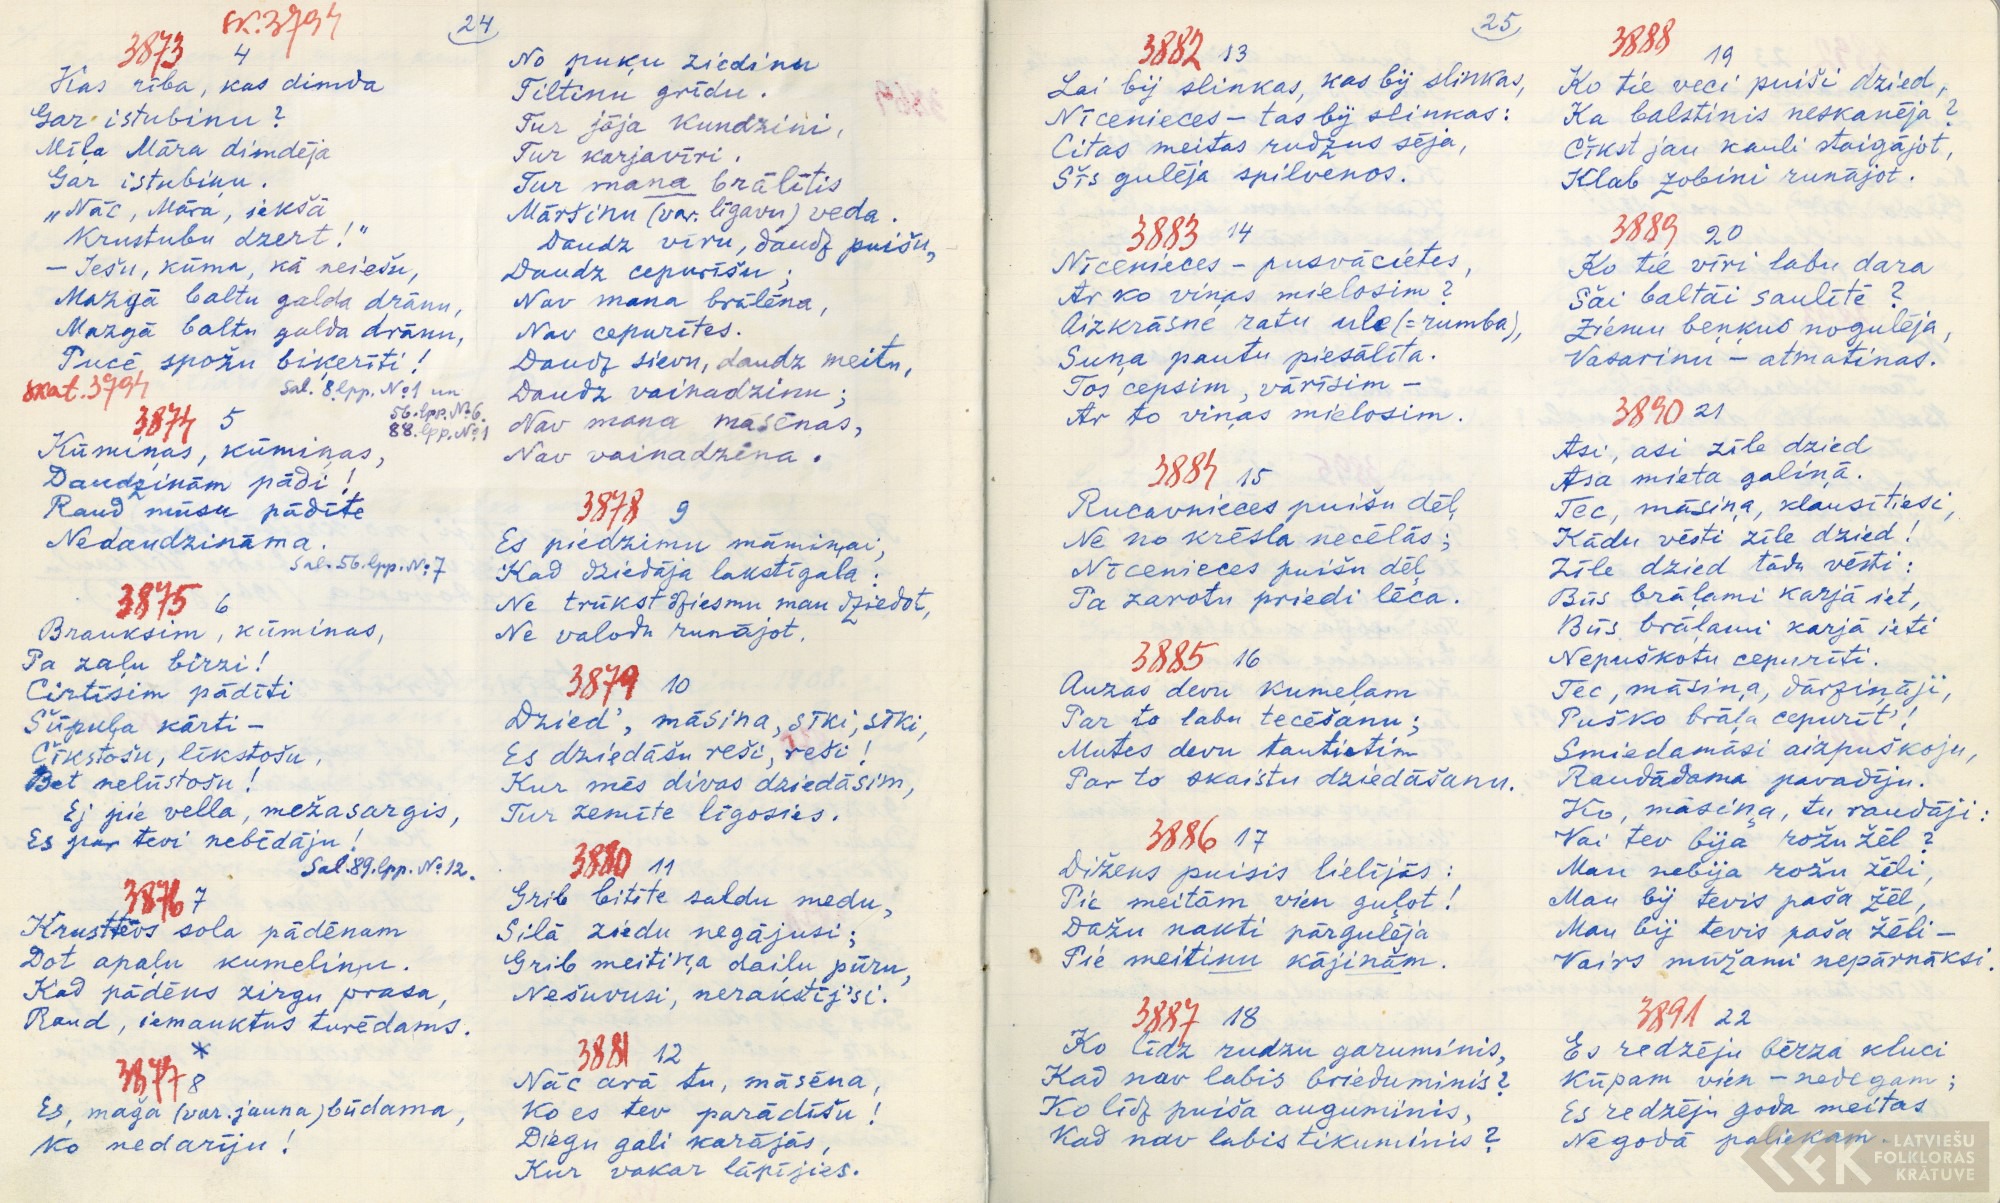 sk. 3794
24
3873
4
Kas rība, kas dimda
Gar istubiņu?
Mīļa Māra dimdēja
Gar istubiņu.
„Nāc, Māra, iekšā
Krustubu dzert!"
– Iešu, kūma, kā neiešu,
Mazgā baltu galda drānu,
Mazgā baltu galda drānu,
Pucē spožu biķerīti!
skat. 3794
Sal. 8. lpp. № 1 un
56. lpp. № 6.
88. lpp. № 1
3874 5
Kūmiņas, kūmiņas,
Daudzinām pādi!
Raud mūsu pādīte
Nedaudzināma.
Sal. 56. lpp. № 7
3875 6
Brauksim, kūmiņas,
Pa zaļu birzi!
Cirtīsim pādīti
Šūpuļa kārti –
Čīkstošu, līkstošu,
Bet nelūstošu!
Ej pie vella, mežasargis,
Es par tevi nebēdāju!
Sal. 89. lpp. № 12.
3876 7
Krusttēvs sola pādēnam
Dot apaļu kumeliņu.
Kad pādēns zirgu prasa,
Raud, iemauktus turēdams.
*
3877 8
Es, maģa (var. jauna) būdama,
Ko nedarīju!
No puķu ziediņu
Tiltiņu grīdu.
Tur jāja kundziņi,
Tur karjavīri.
Tur mana brālītis
Māršiņu (var. līgavu) veda.
Daudz vīru, daudz puišu,
Daudz cepurīšu;
Nav mana brālēna,
Nav cepurītes.
Daudz sievu, daudz meitu,
Daudz vainadziņu;
Nav mana māsēnas,
Nav vainadzēna.
3878 9
Es piedzimu māmiņai,
Kad dziedāja lakstīgala:
Ne trūkst dziesmu man dziedot,
Ne valodu runājot.
3879 10
Dzied', māsiņa, sīki, sīki,
Es dziedāšu reši, reši!
Kur mēs divas dziedāsim,
Tur zemīte līgosies.
3880 11
Grib bitīte saldu medu,
Silā ziedu negājusi;
Grib meitiņa daiļu pūru,
Nešuvusi, nerakstīj'si.
3881 12
Nāc ārā tu, māsēna,
Ko es tev parādīšu!
Diegu gali karājās,
Kur vakar lāpījies.
25
3882 13
Lai bij slinkas, kas bij slinkas,
Nīcenieces – tas bij slinkas:
Citas meitas rudzus sēja,
Šīs gulēja spilvenos.
3883 14
Nīcenieces – pusvācietes,
Ar ko viņas mielosim?
Aizkrāsnē ratu ule (= rumba),
Suņa pautu piesālīta.
Tos cepsim, vārīsim –
Ar to viņas mielosim.
3884 15
Rucavnieces puišu dēļ
Ne no krēsla necēlās;
Nīcenieces puišu dēļ
Pa zarotu priedi lēca.
3885 16
Auzas devu kumeļam
Par to labu tecēšanu;
Mutes devu tautietim
Par to skaistu dziedāšanu.
3886 17
Dižens puisis lielījās:
Pie meitām vien guļot!
Dažu nakti pārgulēja
Pie meitiņu kājiņām.
3887 18
Ko līdz rudzu garumiņis,
Kad nav labis briedumiņis?
Ko līdz puiša augumiņis,
Kad nav labis tikumiņis?
3888
19
Ko tie veci puiši dzied,
Ka balstiņis neskanēja?
Čīkst jau kauli staigājot,
Klab zobiņi runājot.
3889 20
Ko tie vīri labu dara
Šai baltāi saulītē?
Ziemu beņķus nogulēja,
Vasariņu – atmatiņas.
3890 21
Asi, asi zīle dzied
Asa mieta galiņā.
Tec, māsiņa, klausītiesi,
Kādu vēsti zīle dzied!
Zīle dzied tādu vēsti:
Būs brāļami karjā iet,
Būs brāļami karjā ieti
Nepuškotu cepurīti.
Tec, māsiņa, dārziņāji,
Puško brāļa cepurīt'!
Smiedamāsi aizpuškoju,
Raudādama pavadīju.
Ko, māsiņa, tu raudāji:
Vai tev bija rožu žēl?
Man nebija rožu žēli,
Man bij tevis paša žēl,
Man bij tevis paša žēli –
Vairs mūžami nepārnāksi.
3891 22
Es redzēju bērza kluci
Kūpam vien – nedegam;
Es redzēju goda meitas
Negodā paliekam.
LATVIEŠU
FOLKLORAS
KRĀTUVE